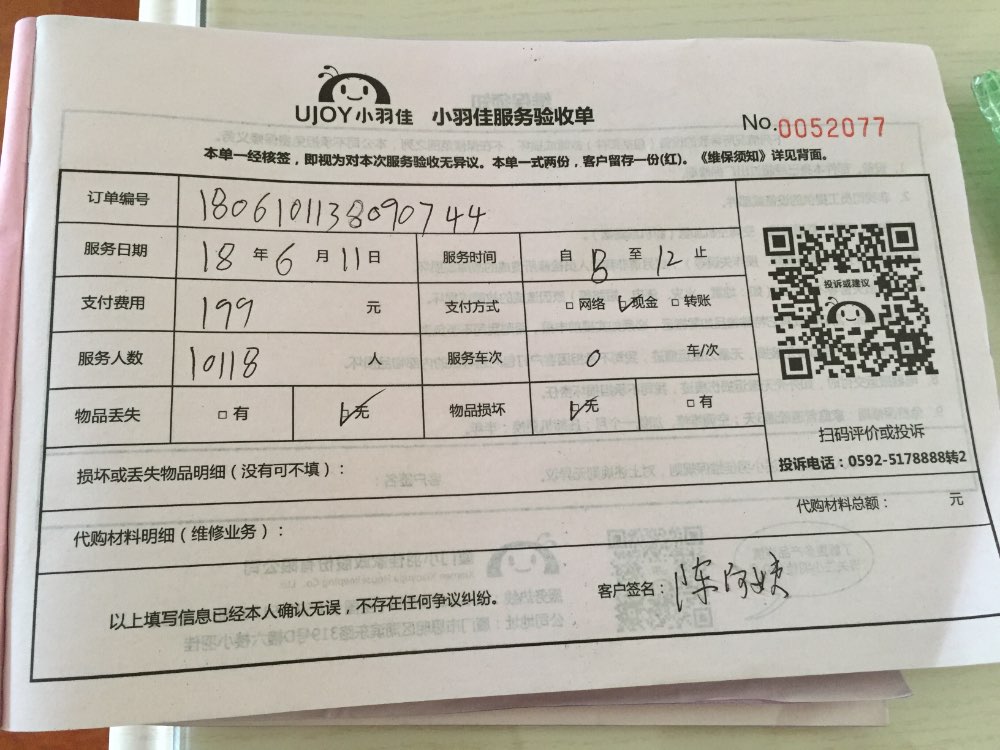 UJOY小羽佳 小羽佳服务验收单
No.0052077
本单一经核签，即视为对本次服务验收无异议。本单一式两份，客户留存一份(红)。《维保须知》详见背面。
订单编号 1806101138090744
服务日期 18年6月11日 服务时间 自 至12止
支付费用 199元 支付方式 □网络 □现金 □转账
服务人数 10118人 服务车次 0车/次
物品丢失 □有 □无 物品损坏 □无 □有
投诉或建议
扫码评价或投诉
投诉电话：0592-5178888转2
损坏或丢失物品明细（没有可不填）：
代购材料明细（维修业务）：
代购材料总额： 元
以上填写信息已经本人确认无误，不存在任何争议纠纷。
客户签名：陈